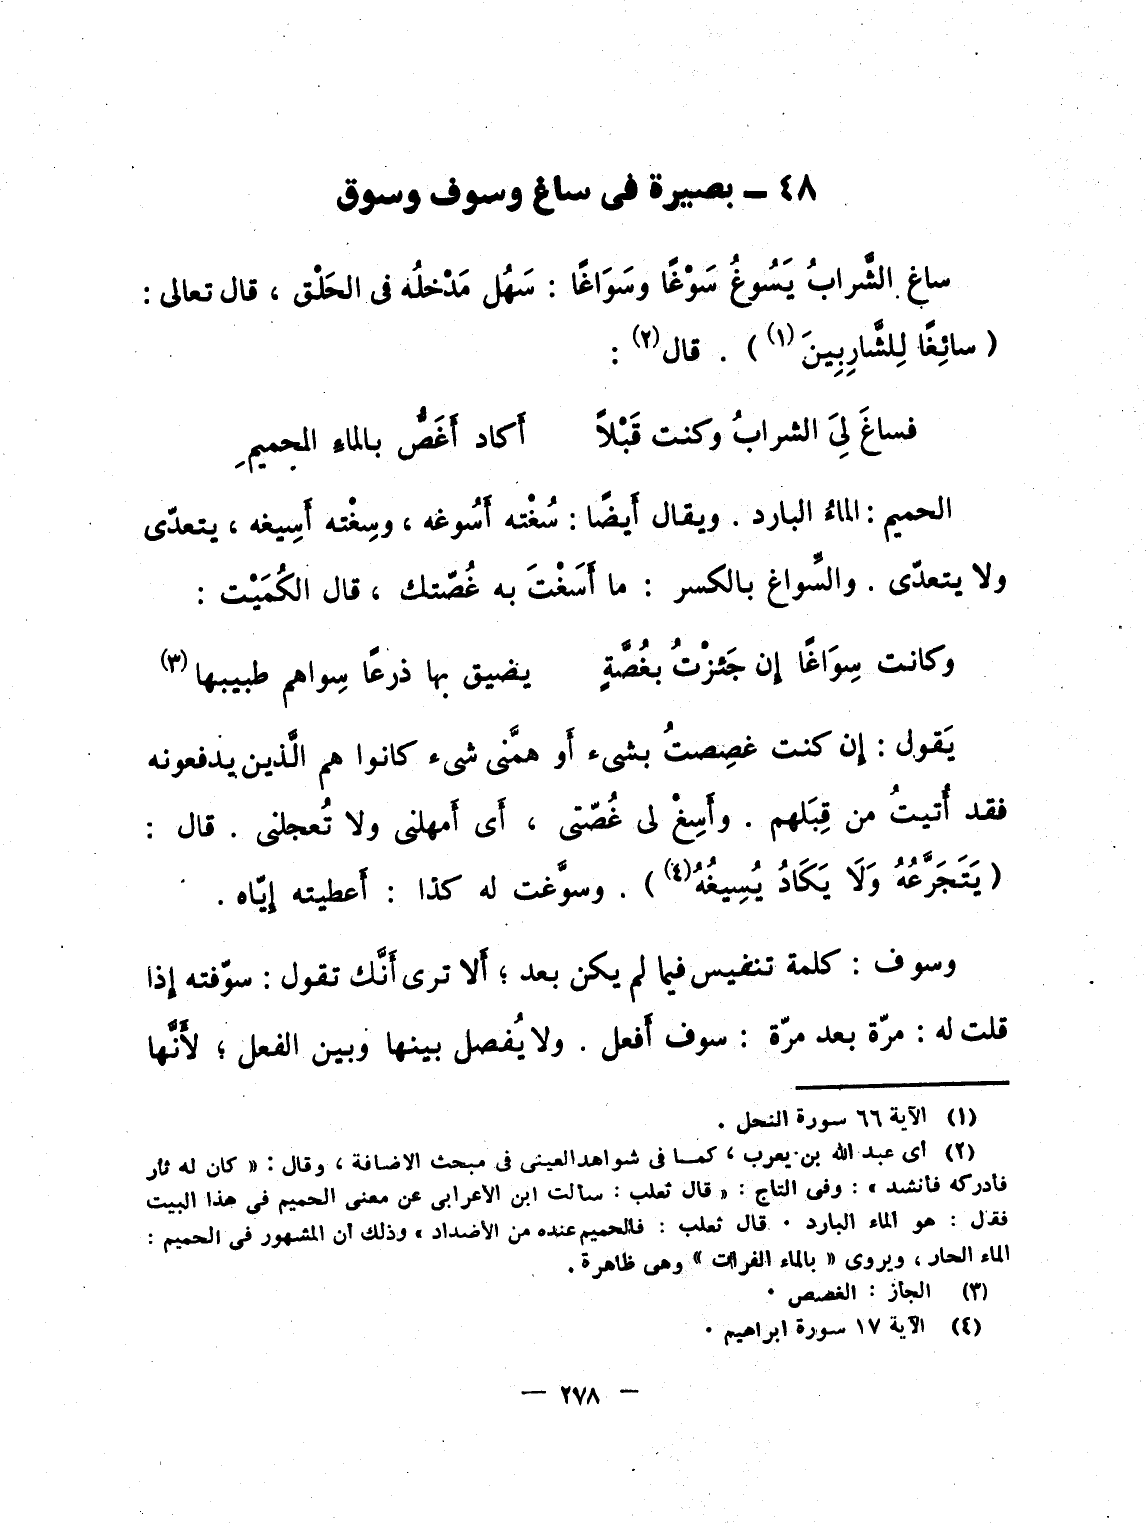 ٤٨ ـ بصيرة فى ساغ وسوف وسوق
ساغ الشَّرابُ يَسُوغُ سَوْغًا وسَوَاغًا : سَهُل مَدْخلُه فى الحَلْق ، قال تعالى :
( سائِغًا لِلشَّارِبِينَ (١) ) . قال (٢) :
فساغَ لِىَ الشرابُ وكنت قَبْلاً أكاد أَغَصُّ بالماء الحميمِ
الحميم : الماءُ البارد . ويقال أَيضًا : سُغْته أَسُوغه ، وسِغْته أَسِيغه ، يتعدّى
ولا يتعدّى . والسِّواغ بالكسر : ما أَسَغْتَ به غُصّتك ، قال الكُمَيْت :
وكانت سِوَاغًا إن جَئزْتُ بغُصَّةٍ يضيق بها ذرعًا سِواهم طبيبها (٣)
يَقول : إن كنت غصِصتُ بشىء أو همَّنى شىء كانوا هم الَّذين يدفعونه
فقد أُتيتُ من قِبَلهم . وأَسِغْ لى غُصّتى ، أى أمهلنى ولا تُعجلنى . قال :
( يَتَجَرَّعُهُ وَلَا يَكَادُ يُسِيغُهُ (٤) ) . وسوَّغت له كذا : أَعطيته إيّاه .
وسوف : كلمة تنفيس فيما لم يكن بعد ؛ أَلا ترى أَنَّك تقول : سوّفته إذا
قلت له : مرّة بعد مرّة : سوف أَفعل . ولا يُفصل بينها وبين الفعل ؛ لأَنَّها
(١) الآية ٦٦ سورة النحل .
(٢) أى عبد الله بن يعرب ، كما فى شواهد العينى فى مبحث الاضافة ، وقال : « كان له ثأر
فأدركه فأنشد » : وفى التاج : « قال ثعلب : سألت ابن الأعرابى عن معنى الحميم فى هذا البيت
فقال : هو الماء البارد . قال ثعلب : فالحميم عنده من الأضداد » وذلك أن المشهور فى الحميم :
الماء الحار ، ويروى « بالماء الفرات » وهى ظاهرة .
(٣) الجأز : الغصص .
(٤) الآية ١٧ سورة ابراهيم .
— ٢٧٨ —